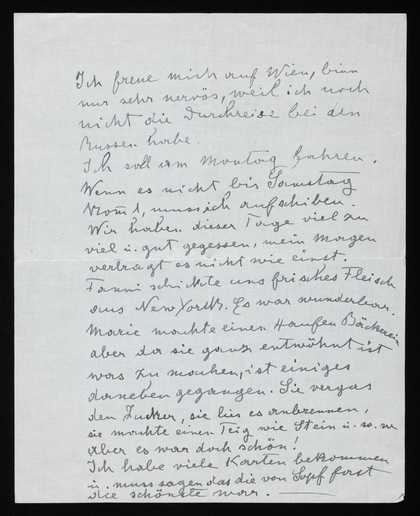 Ich freue mich auf Wien, bin
nur sehr nervös, weil ich noch
nicht die Durchreise bei den
Russen habe.
Ich soll am Montag fahren.
Wenn es nicht bis Samstag
kommt, muss ich aufschieben.
Wir haben dieser Tage viel zu
viel u. gut gegessen, mein Magen
verträgt es nicht wie einst.
Fanni schickte uns frisches Fleisch
aus New York. Es war wunderbar.
Marie machte einen Haufen Bäckerei
aber da sie ganz entwöhnt ist
was zu machen, ist einiges
daneben gegangen. Sie vergas
den Zucker, sie lies es anbrennen,
sie machte einen Teig wie Stein u. s. w.
Aber es war doch schön!
Ich habe viele Karten bekommen
u. muss sagen das die von fast
die schönste war.